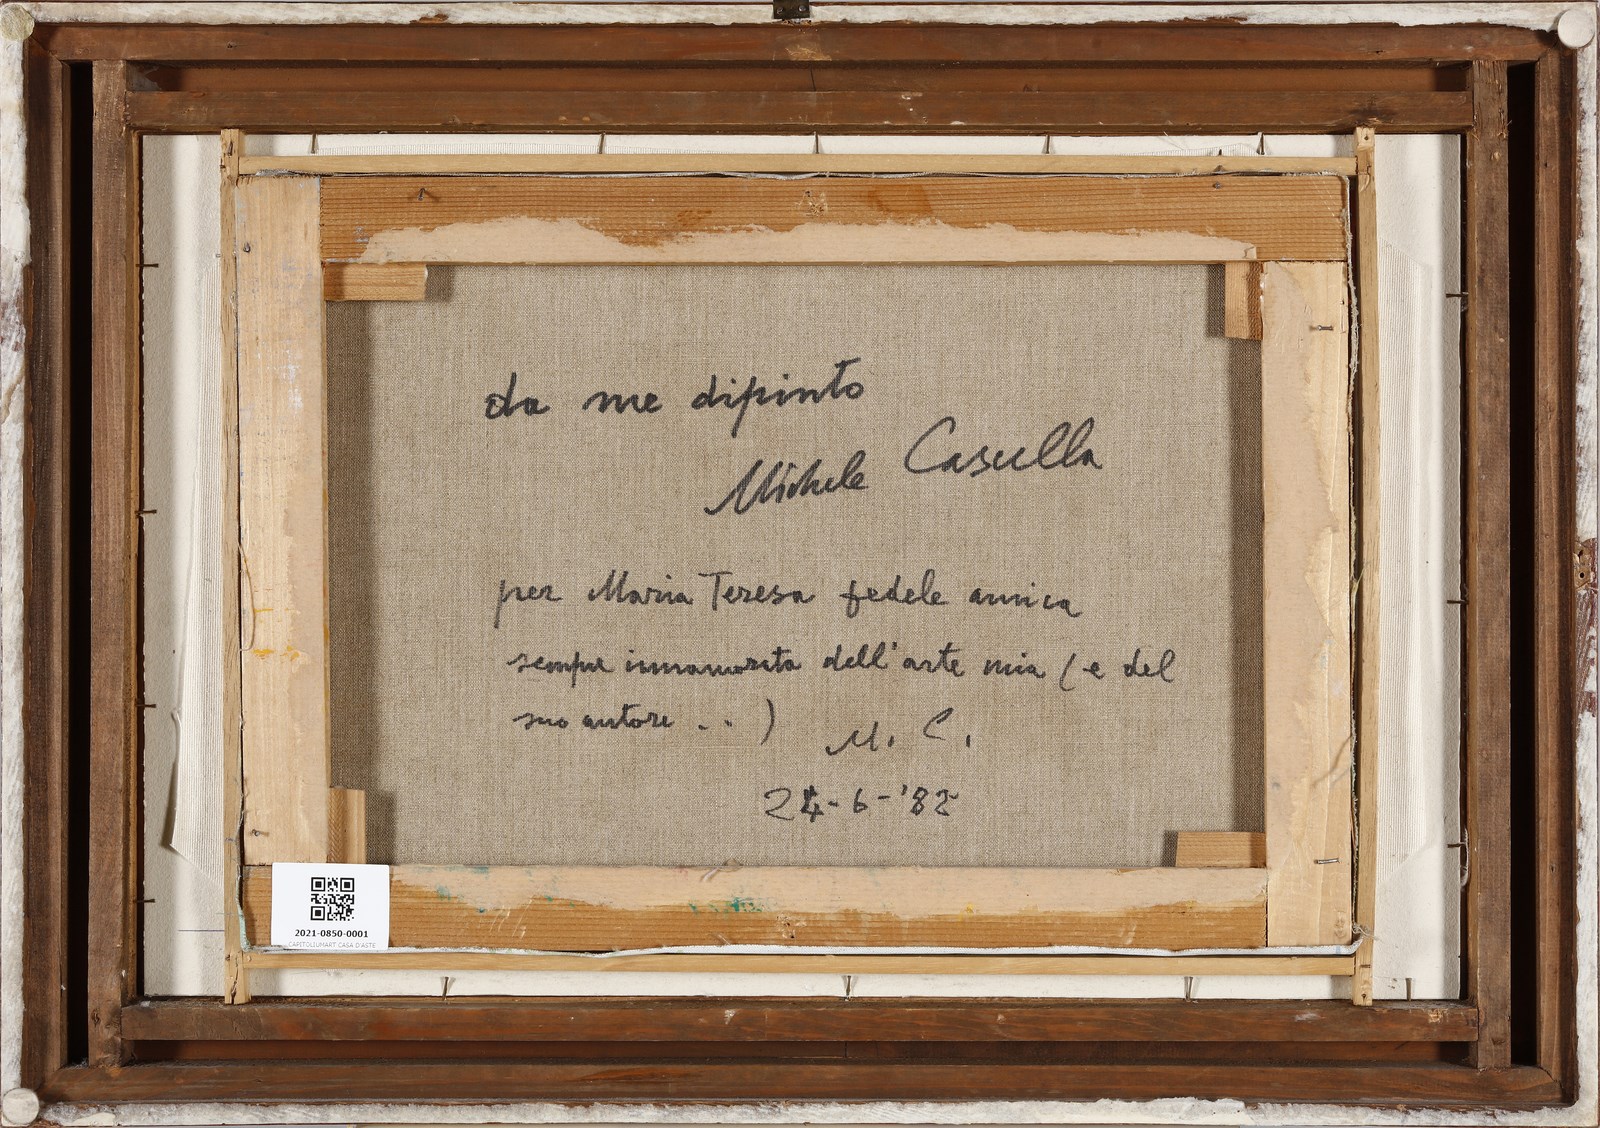 da me dipinto
Michele Cascella
per Maria Teresa fedele amica
sempre innamorata dell'arte mia (e del
suo autore . . )
M. C.
24-6-'82
2021-0850-0001
CAPITOLIUMART CASA D'ASTE